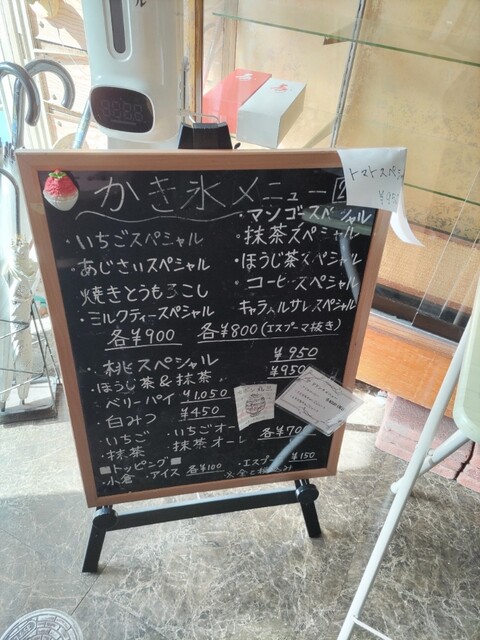 かき氷メニュー
トマトスペシャ
・いちごスペシャル
・あじさいスペシャル
焼きとうもろこし
・ミルクティースペシャル
・マンゴースペシャル
・抹茶スペシャル
・ほうじ茶スペシャル
・コーヒースペシャル
・キャラメルサレスペシャル
各¥900 各¥800(エスプーマ抜き)
・桃スペシャル ¥950
・ほうじ茶&抹茶 ¥950
・ベリーパイ ¥1,050
・白みつ ¥450
・いちご ・いちごオーレ
・抹茶 ・抹茶オーレ 各¥700
■トッピング■
・小倉 ・アイス 各¥100 ・エスプーマ ¥150